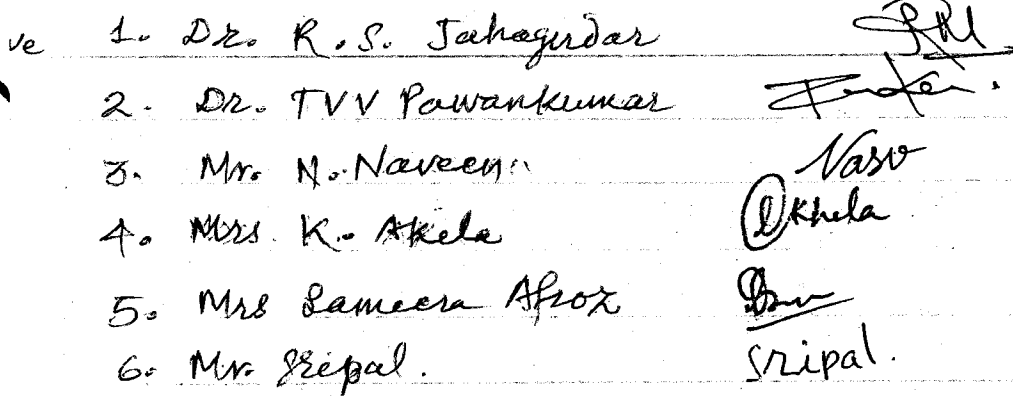 ve 1. Dr. R.S. Jahagirdar
2. Dr. TVV Pawankumar
3. Mr. N. Naveen Nasv
4. Mrs. K. Akela @Khela
5. Mrs Sameera Afroz
6. Mr. Sripal. Sripal.